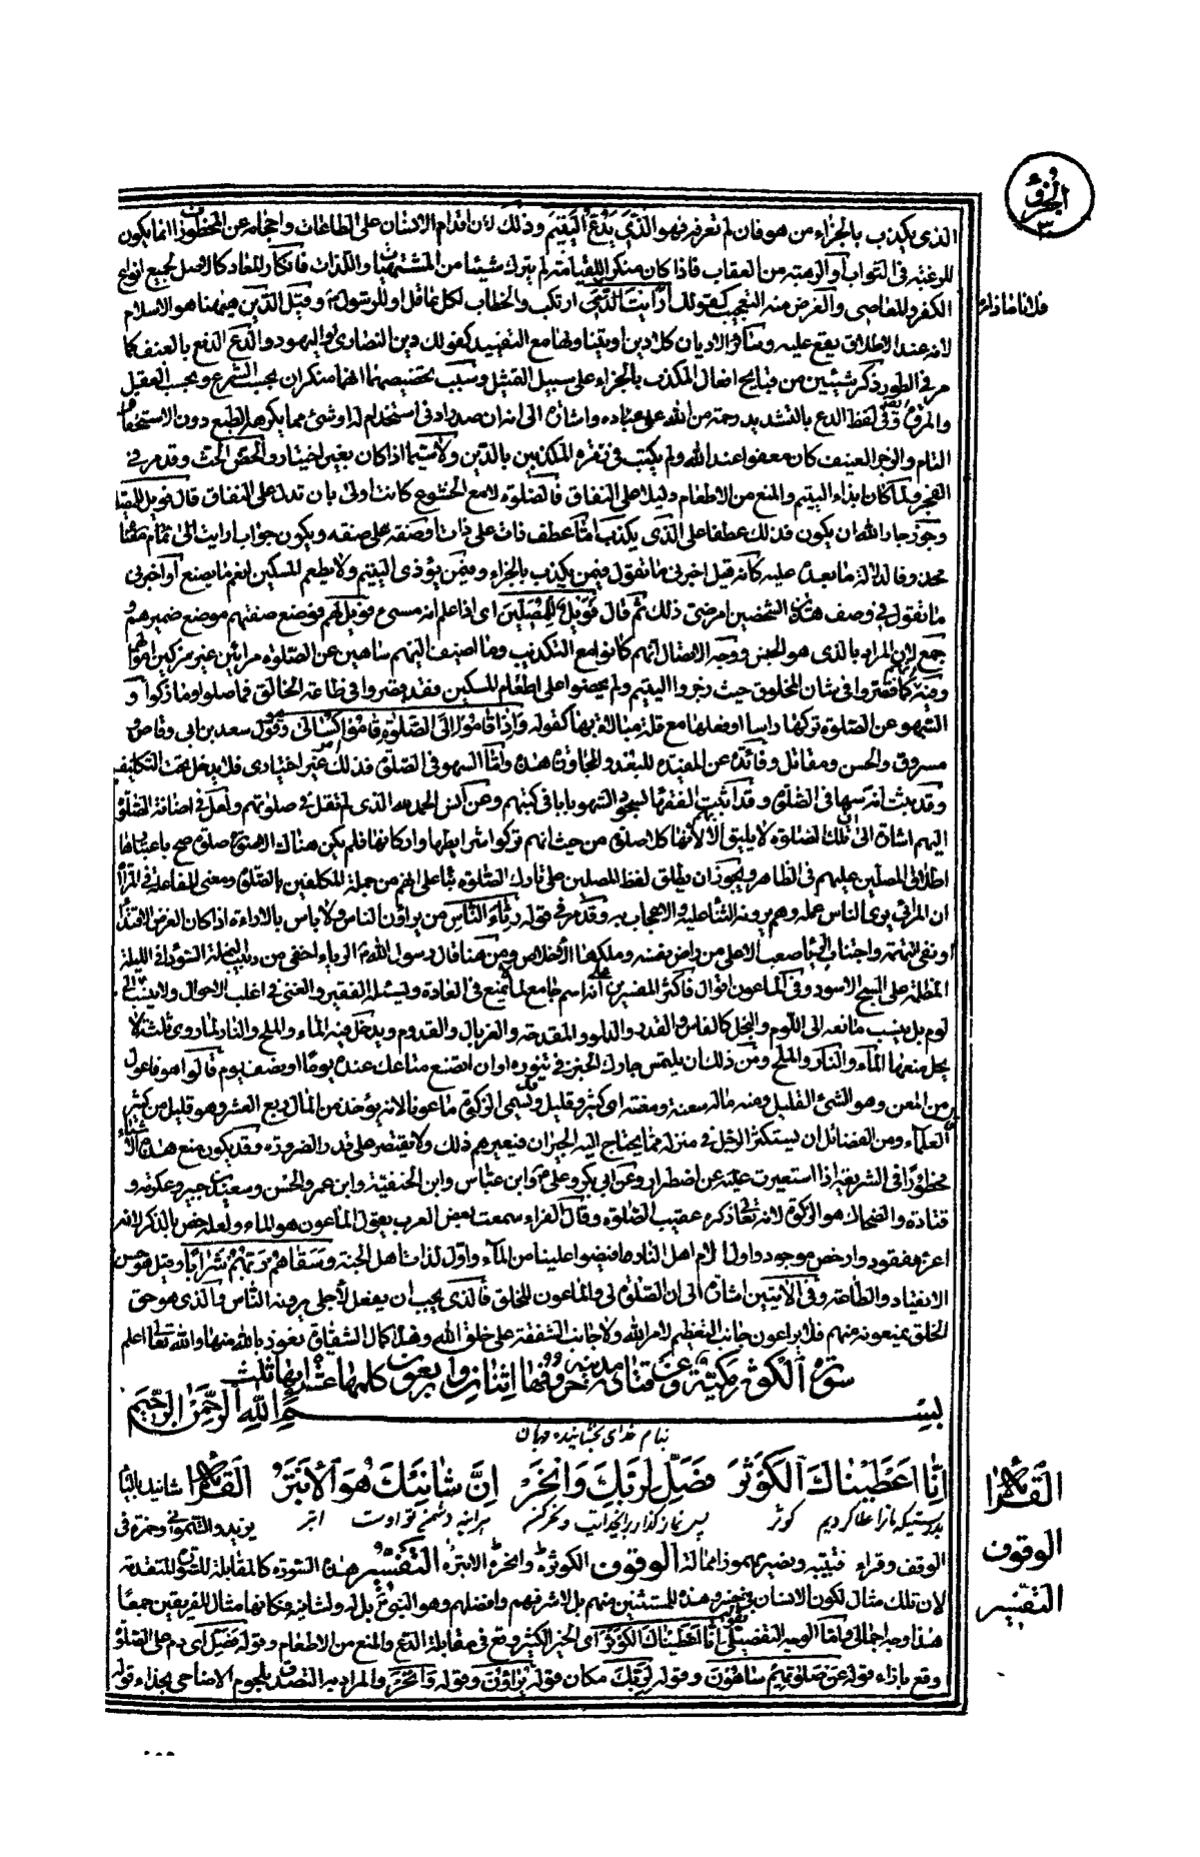 الجزو
٣٠
الذى يكذب بالجزاء من هو فان لم تعرفه فهو الَّذي يَدُعُّ الْيَتِيمَ وذلك لان اقدام الانسان على الطاعات واحجامه عن المحظورات انما يكون
للرغبة فى الثواب او الرهبة من العقاب فاذا كان منكرا للقيامة لم يترك شيئا من المشتهيات واللذات فانكار المعاد كالاصل لجميع انواع
الكفر والمعاصى والغرض منه التعجيب كقولك ارايت الذى ارتكب والخطاب لكل عاقل او للرسول وقيل الدين ههنا هو الاسلام
لانه عند الاطلاق يقع عليه وسائر الاديان كلا دين او يتناولها مع التقييد كقولك دين النصارى واليهود والدع الدفع بالعنف كما
مر فى الطور ذكر شيئين من قبايح افعال المكذب بالجزاء على سبيل التمثيل وسبب تخصيصهما انهما منكران بحسب الشرع وبحسب العقل
والمروة وفى لفظ الدع بالتشديد رحمة من الله على عباده واشارة الى انه ان صدر ادنى استخدام له او شئ مما يكره الطبع دون الاستخفاف
التام والزجر العنيف كان معفوا عند الله ولم يكتب فى زمرة المكذبين بالدين ولا سيما اذا كان بغير اختيار والحض الحث وقد مر فى
الفجر ولما كان ايذاء اليتيم والمنع من الاطعام دليلا على النفاق فالصلوة لا مع الخشوع كانت اولى بان تدل على النفاق قال فويل للمصلين
وجوز جار الله ان يكون فذلك عطفا على الذى يكذب اما عطف ذات على ذات او صفة على صفة ويكون جواب ارايت
محذوفا لدلالة ما بعده عليه كانه قيل اخبرنى ما تقول فيمن يكذب بالجزاء وفيمن يؤذى اليتيم ولا يطعم المسكين انعم ما يصنع او اخبرنى
ما تقول فى وصف هذين الشخصين امرضى ذلك ثم قال فَوَيْلٌ لِلْمُصَلِّينَ اى اذا علم انه مسىء فويل لهم فوضع صفتهم موضع ضميرهم وهو
جمع لان المراد بالذى هو الجنس ووجه الاتصال انهم كانوا مع التكذيب وما اضيف اليهم ساهين عن الصلوة مرائين غير مزكين اموالهم
كما قصروا فى شان المخلوق حيث زجروا اليتيم ولم يحضوا على اطعام المسكين فقد قصروا فى طاعة الخالق فما صلوا وما زكوا و
السهو عن الصلوة تركها راسا او فعلها مع قلة مبالاة بها كقوله وَإِذَا قَامُوا إِلَى الصَّلٰوةِ قَامُوا كُسَالٰى وهو قول سعد بن ابى وقاص و
مسروق والحسن ومقاتل وفائدة عن المفيدة للبعد والمجاوزة هذه واما السهو فى الصلوة فذلك امر غير اختيارى فلا يدخل تحت التكليف
وقد يثبت انه سها فى الصلوة وقد اثبت الفقهاء لسجود السهو بابا فى كتبهم وعن انس الحمد لله الذى لم يقل فى صلوتهم ولعل فى اضافة الصلوة
اليهم اشارة الى ان تلك الصلوة لا يليق الا بهم لانها كلا صلوة من حيث انهم تركوا شرايطها واركانها فلم يكن هناك الا صورة صلوة صح باعتبارها
اطلاق المصلين عليهم فى الظاهر ويجوز ان يطلق لفظ المصلين على تارك الصلوة بناء على انهم من جملة المكلفين بالصلوة ومعنى المفاعلة فى المراآة
ان المرائى يرى الناس عمله وهم يرونه الثناء عليه والاعجاب به وقد مر فى قوله رِئَاءَ النَّاسِ من يراؤن الناس ولا باس بالاراءة اذا كان الغرض الاقتداء
او نفى التهمة واجتناب الرياء صعب الا على من راض نفسه وملكها الاخلاص ومن هنا قال رسول الله الرياء اخفى من دبيب النملة السوداء فى الليلة
المظلمة على المسح الاسود وفى الماعون اقوال فاكثر المفسرين على انه اسم جامع لما لا يمنع فى العادة ويسئله الفقير والغنى فى اغلب الاحوال ولا ينسب الى
لوم بل ينسب مانعه الى اللؤم والبخل كالفاس والقدر والدلو والمقدحة والغربال والقدوم ويدخل فيه الماء والملح والنار لما روى ثلثة لا
يحل منعها الماء والنار والملح ومن ذلك ان يلتمس جارك الخبز فى تنوره او ان تضع متاعك عنده يوما او نصف يوم قالوا هو فاعول
من المعن وهو الشئ القليل ومنه ماله سعنة ومعنة اى كثير وقليل ويسمى الزكوة ماعونا لانه يؤخذ من المال ربع العشر وهو قليل من كثير
العلماء ومن الفضائل ان يستكثر الرجل فى منزله مما يحتاج اليه الجيران فيعيرهم ذلك ولا يقتصر على قدر الضرورة وقد يكون منع هذه الاشياء
محظورا فى الشريعة اذا استعيرت عن اضطرار وعن ابى بكر وعلى وابن عباس وابن الحنفية وابن عمر والحسن وسعيد بن جبير وعكرمة و
قتادة والضحاك هو الزكوة لانه تعالى ذكره عقيب الصلوة وقال الفراء سمعت بعض العرب يقول الماعون هو الماء ولعله خص بالذكر لانه
اعز مفقود وارخص موجود واول الام اهل النار افيضوا علينا من الماء واول لذات اهل الجنة وَسَقَاهُمْ رَبُّهُمْ شَرَابًا وقيل هو حسن
الانقياد والطاعة وفى الايتين اشارة الى ان الصلوة لى والماعون للخلق فالذى يجب ان يفعل لاجلى يرونه الناس والذى هو حق
الخلق يمنعونه منهم فلا يراعون جانب التعظيم لامر الله ولا جانب الشفقة على خلق الله وهذا كمال الشقاوة نعوذ بالله منها والله تعالى اعلم
سورة الكوثر مكية وعن قتادة مدنية حروفها اثنان واربعون كلماتها عشر اياتها ثلث
بِسْمِ اللهِ الرَّحْمٰنِ الرَّحِيمِ
بنام خداى بخشاينده مهربان
إِنَّا أَعْطَيْنَاكَ الْكَوْثَرَ فَصَلِّ لِرَبِّكَ وَانْحَرْ إِنَّ شَانِئَكَ هُوَ الْأَبْتَرُ القراءات شانيك بالياء
بدرستيكه ما ترا عطا كرديم كوثر پس نماز گذار براى پروردگارت و نحر كن بدرستيكه دشمن تو اوست ابتر يزيد والشمونى وحمزة فى
الوقف وقراء قتيبة ونصير مهموزا ممالة الوقوف الكوثر ه وانحر ه الابتر ه التفسير هذه السورة كالمقابلة للسورة المتقدمة
لان تلك مثال لكون الانسان فى خسر وهذه للمستثنين منهم بل لاشرفهم وافضلهم وهو النبى بل له ولشانئه فكانها مثال للفريقين جميعا
هذا وجه اجمالى واما الوجه التفصيلى فقوله إِنَّا أَعْطَيْنَاكَ الْكَوْثَرَ اى الخير الكثير وقع فى مقابلة الدع والمنع من الاطعام وقوله فَصَلِّ اى دم على الصلوة
وقع بازاء قوله عَنْ صَلٰوتِهِمْ سَاهُونَ وقوله لِرَبِّكَ مكان قوله يُرَاؤُنَ وقوله وَانْحَرْ والمراد به التصدق بلحوم الاضاحى بحذاء قوله
القراءات
الوقوف
التفسير